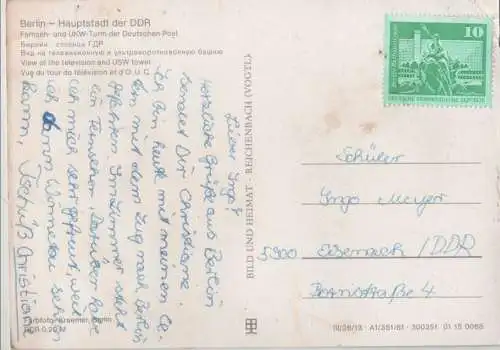 Berlin – Hauptstadt der DDR
Fernseh- und UKW-Turm der Deutschen Post
Берлин столица ГДР
Вид на телевизионную и ультракоротковолновую башню
View of the television and USW tower
Vue du tour de télévision et d'O.U.C.
Lieber Ingo!
Herzliche Grüße aus Berlin
sendet Dir Christiane.
Ich bin heut mit meinen El-
tern mit dem Zug nach Berlin
gefahren. Im Zimmer steht
ein Fernseher. Darüber habe
ich mich sehr gefreut, weil
ich dann Wimmeln sehen
kann, Tschüß Christiane
Farbfoto: Kraemer, Berlin
EVP 0,20 M
BILD UND HEIMAT · REICHENBACH (VOGTL)
10
DEUTSCHE DEMOKRATISCHE REPUBLIK
Schüler
Ingo Meyer
5900 Eisenach/DDR
4
IV/26/13 A1/351/81 300351 01 15 0068